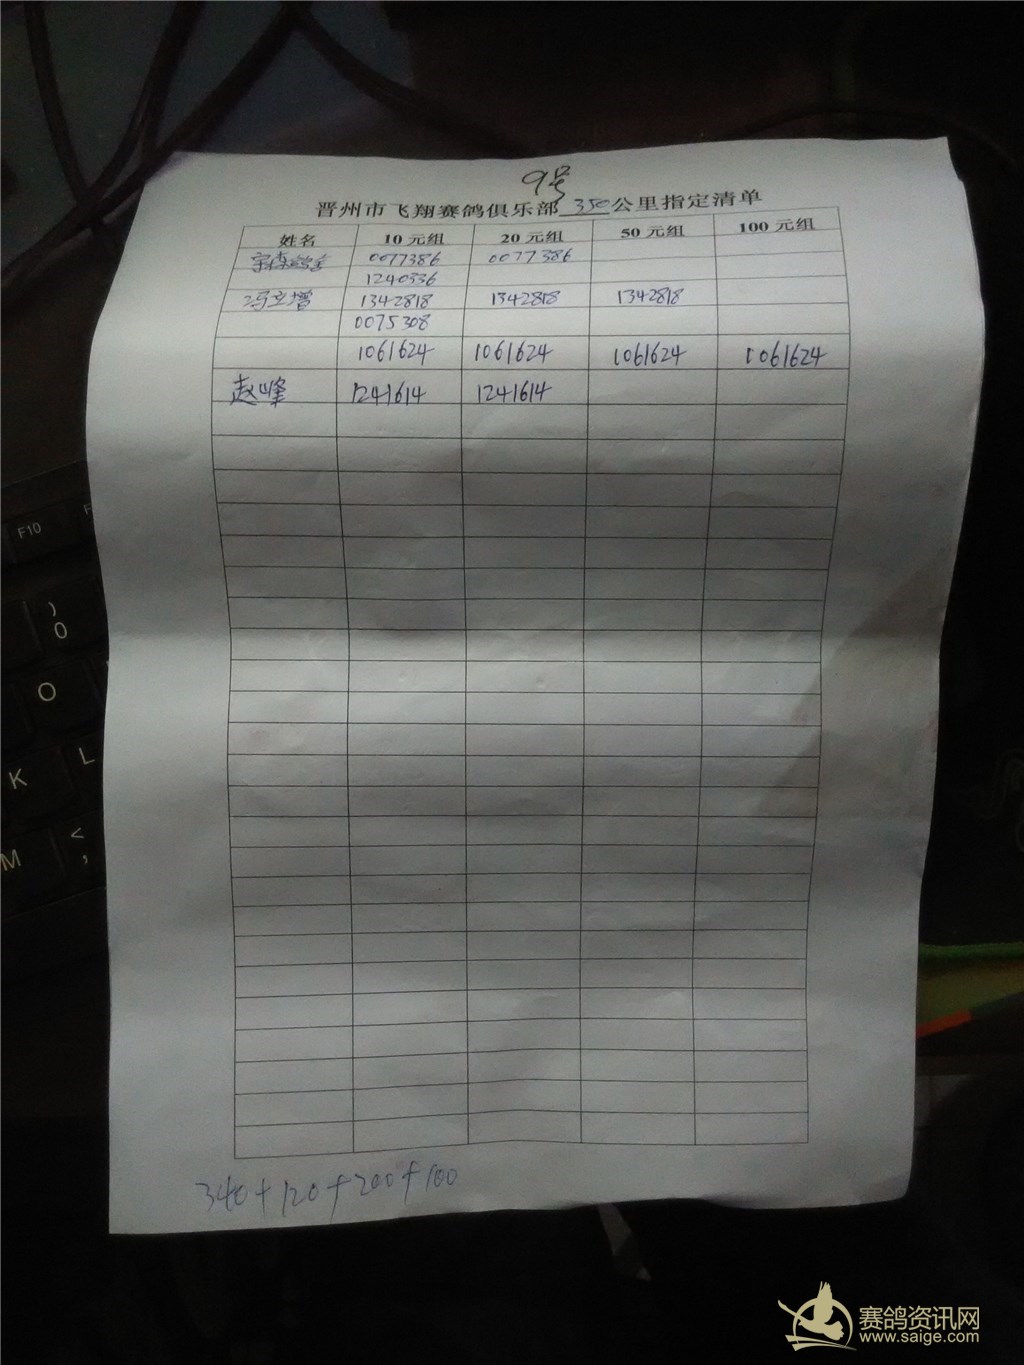 9号
晋州市飞翔赛鸽俱乐部 350 公里指定清单
姓名 10 元组 20 元组 50 元组 100 元组
0077386 0077386
1240336
冯立增 1342818 1342818 1342818
0075308
1061624 1061624 1061624 1061624
赵峰 1241614 1241614
340+120+200+100
F10
)
0
O
K
L
M
<
,
赛鸽资讯网
www.saige.com